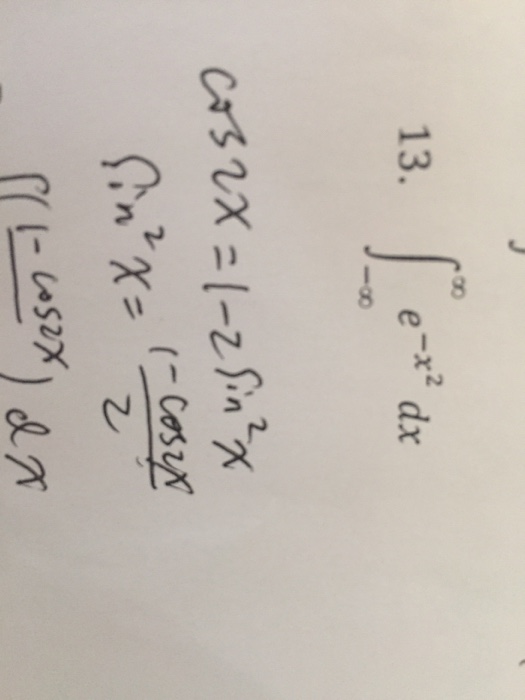 13. ∫_{-∞}^{∞} e^{-x^2} dx
cos2x = 1-2sin²x
sin²x = \frac{1-cos2x}{2}
∫(\frac{1-cos2x}{}) dx